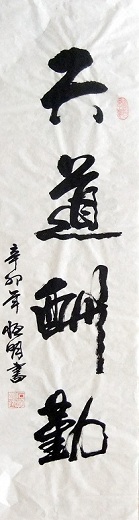 天道酬勤
辛卯年恒明書